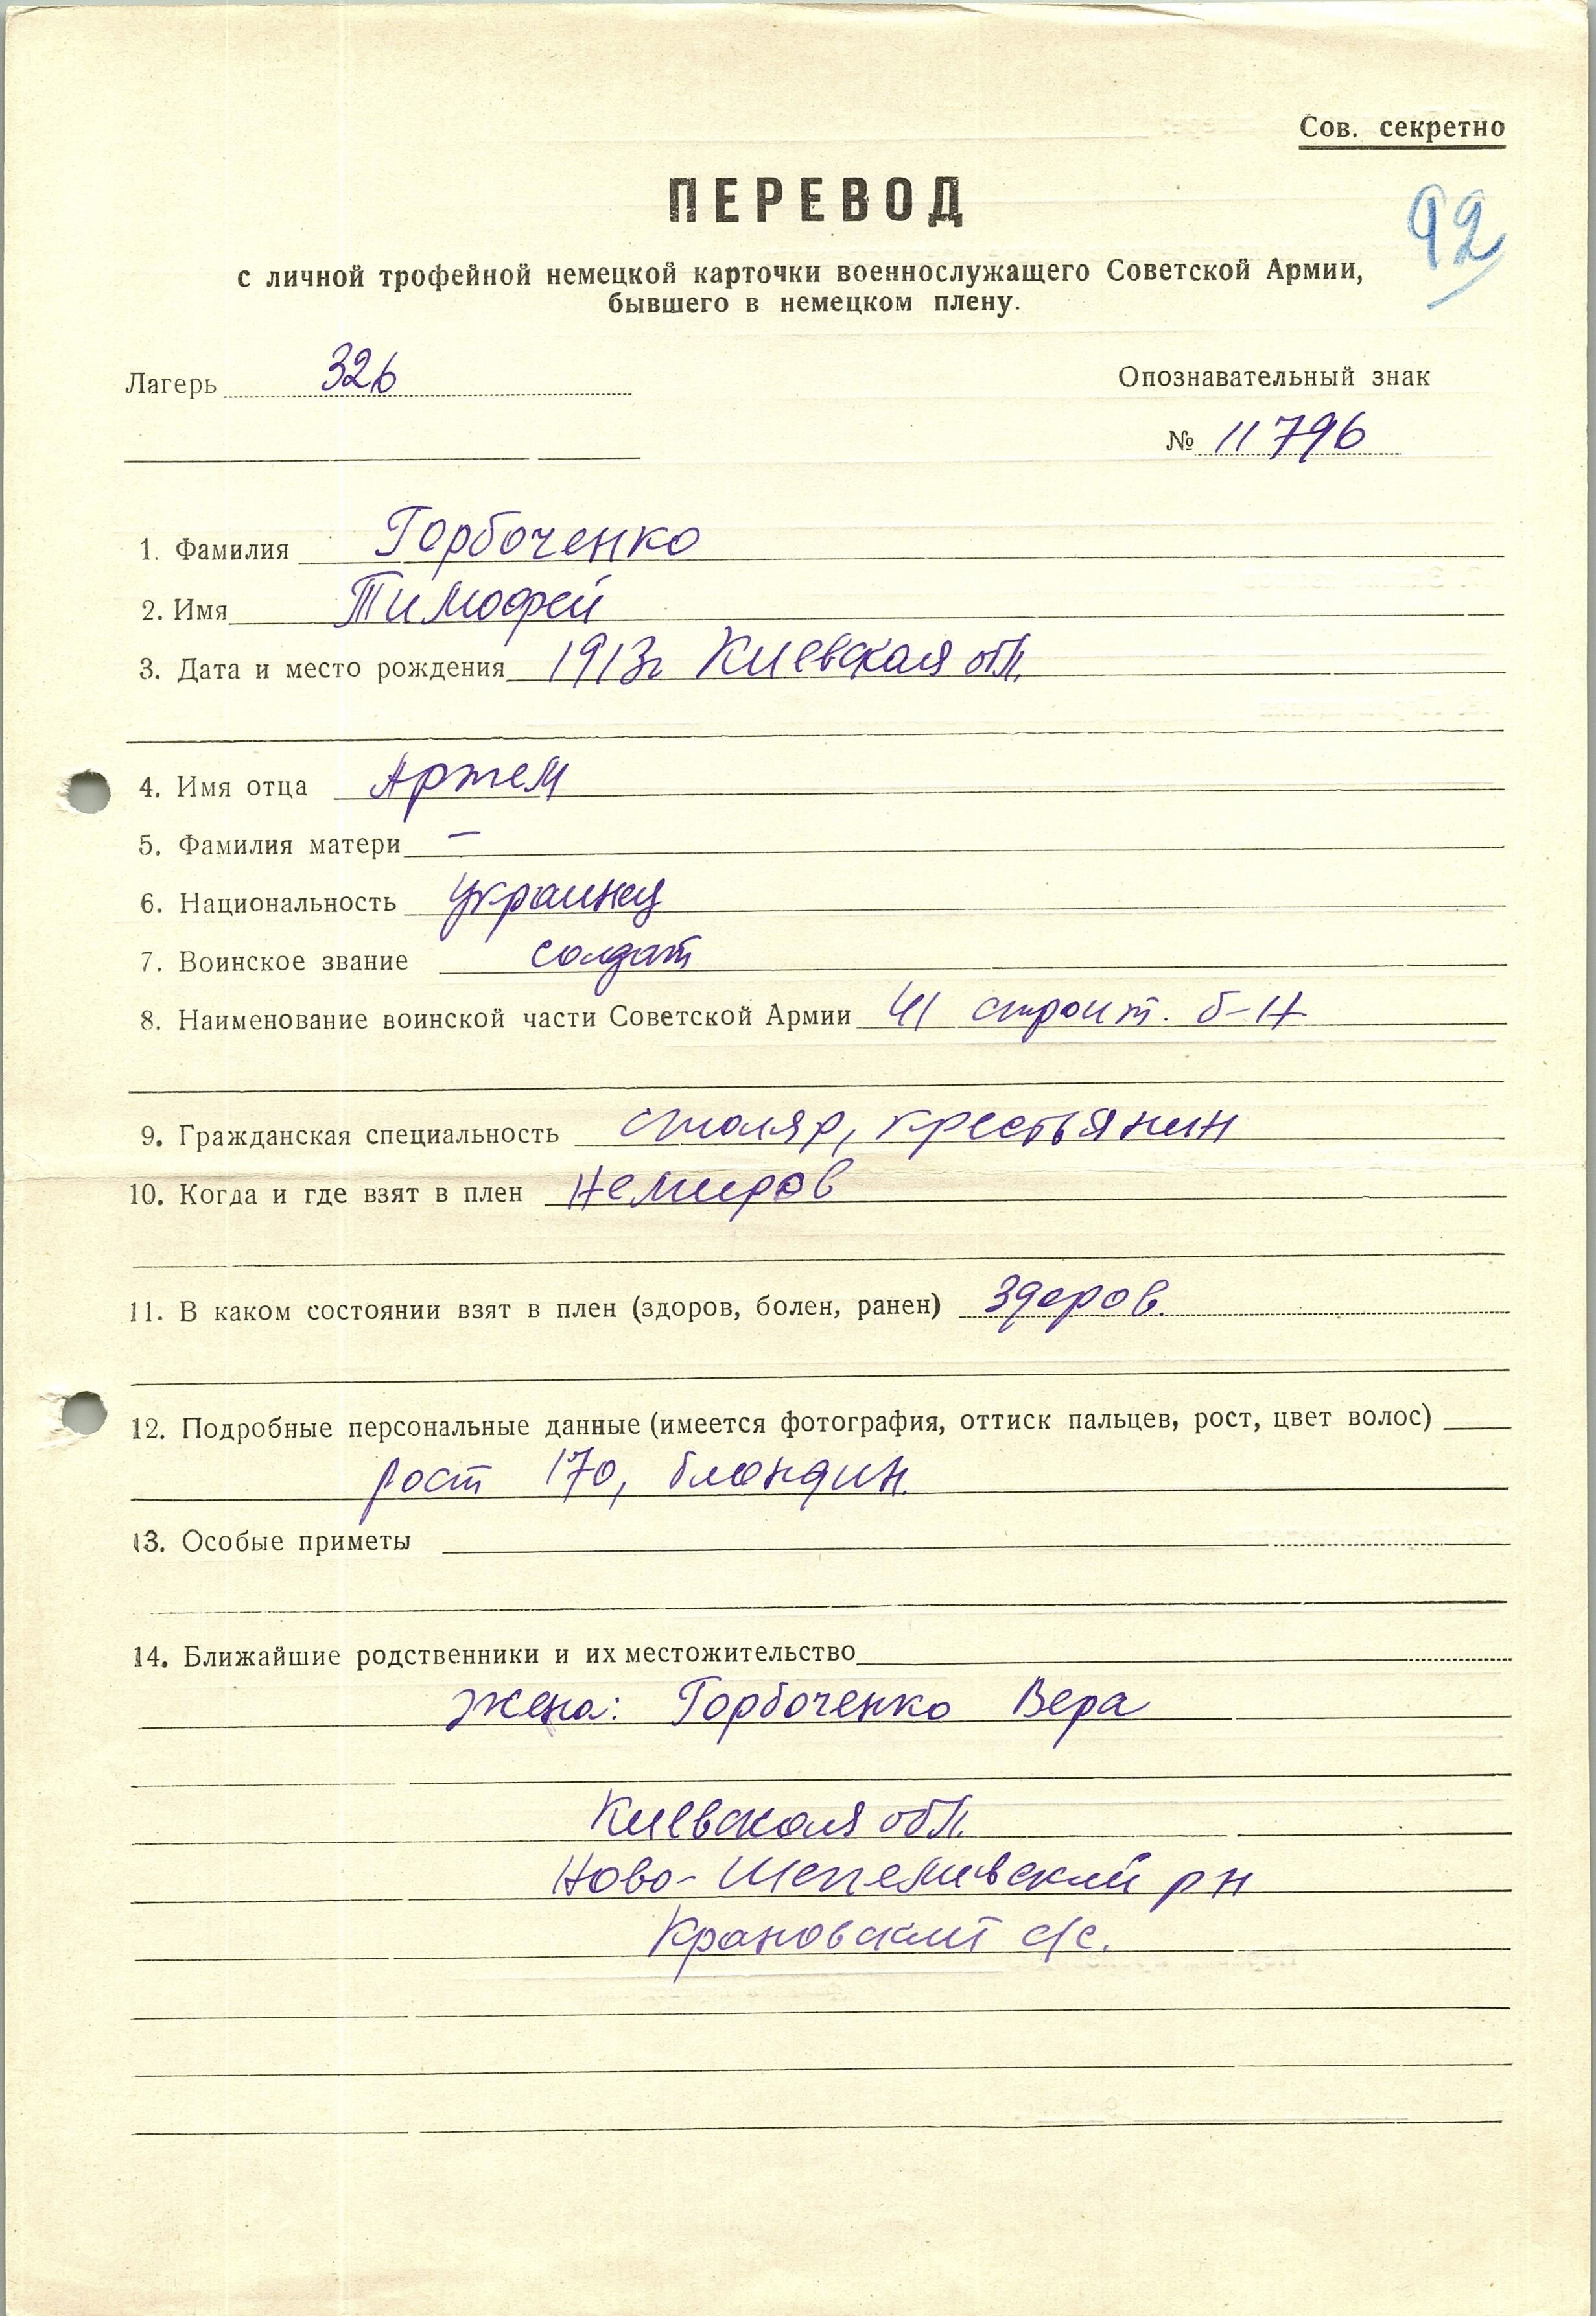 Сов. секретно
ПЕРЕВОД
92
с личной трофейной немецкой карточки военнослужащего Советской Армии,
бывшего в немецком плену.
Лагерь 326
Опознавательный знак
№ 11796
1. Фамилия Горбоченко
2. Имя Тимофей
3. Дата и место рождения 1913г Киевская обл.
4. Имя отца Артем
5. Фамилия матери —
6. Национальность украинец
7. Воинское звание солдат
8. Наименование воинской части Советской Армии 41 строит. б-н
9. Гражданская специальность столяр, крестьянин
10. Когда и где взят в плен Немиров
11. В каком состоянии взят в плен (здоров, болен, ранен) здоров.
12. Подробные персональные данные (имеется фотография, оттиск пальцев, рост, цвет волос)
рост 170, блондин.
13. Особые приметы
14. Ближайшие родственники и их местожительство
жена: Горбоченко Вера
Киевская обл.
Ново-Шепеливский рн
Крановский с/с.